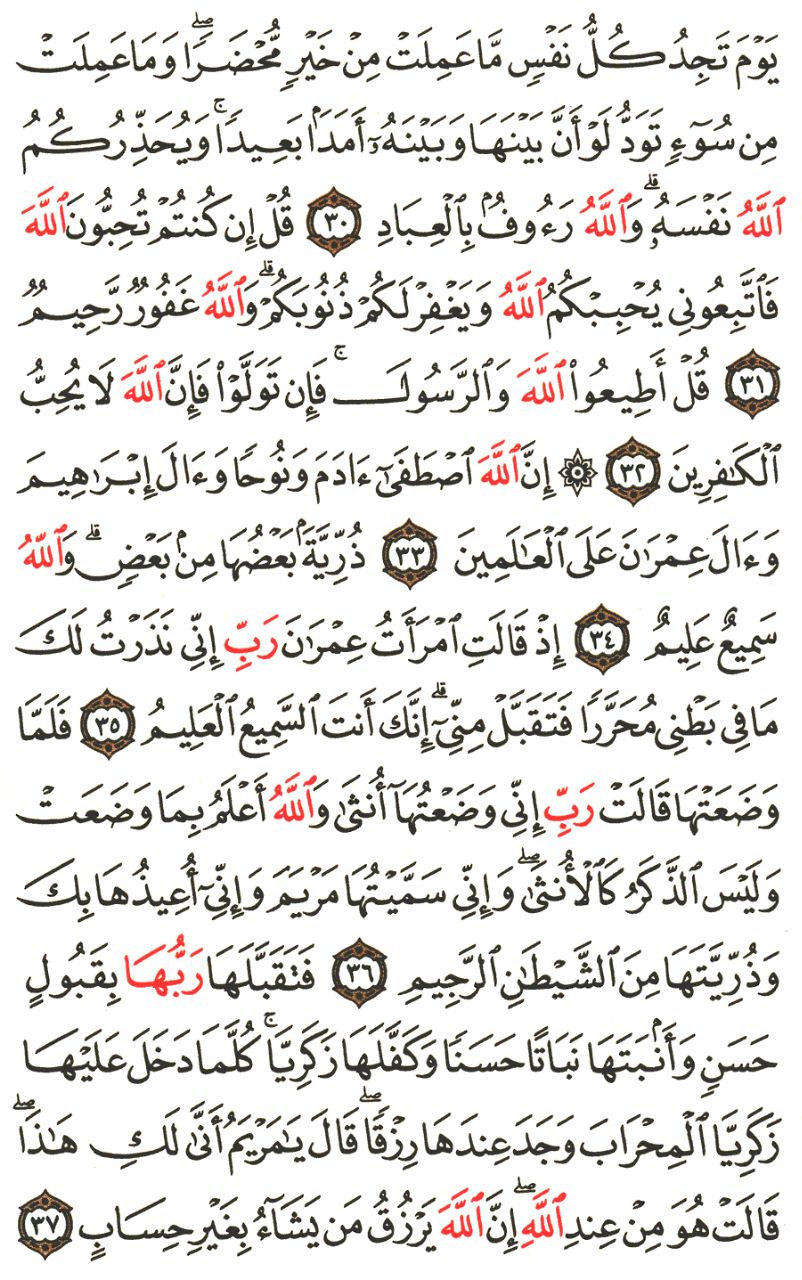 يَوْمَ تَجِدُ كُلُّ نَفْسٍ مَّا عَمِلَتْ مِنْ خَيْرٍ مُّحْضَرًا ۖ وَمَا عَمِلَتْ
مِن سُوٓءٍ تَوَدُّ لَوْ أَنَّ بَيْنَهَا وَبَيْنَهُۥٓ أَمَدًۢا بَعِيدًا ۗ وَيُحَذِّرُكُمُ
ٱللَّهُ نَفْسَهُۥ ۗ وَٱللَّهُ رَءُوفٌۢ بِٱلْعِبَادِ ٣٠ قُلْ إِن كُنتُمْ تُحِبُّونَ ٱللَّهَ
فَٱتَّبِعُونِى يُحْبِبْكُمُ ٱللَّهُ وَيَغْفِرْ لَكُمْ ذُنُوبَكُمْ ۗ وَٱللَّهُ غَفُورٌ رَّحِيمٌ
٣١ قُلْ أَطِيعُوا۟ ٱللَّهَ وَٱلرَّسُولَ ۖ فَإِن تَوَلَّوْا۟ فَإِنَّ ٱللَّهَ لَا يُحِبُّ
ٱلْكَٰفِرِينَ ٣٢ ۞ إِنَّ ٱللَّهَ ٱصْطَفَىٰٓ ءَادَمَ وَنُوحًا وَءَالَ إِبْرَٰهِيمَ
وَءَالَ عِمْرَٰنَ عَلَى ٱلْعَٰلَمِينَ ٣٣ ذُرِّيَّةًۢ بَعْضُهَا مِنۢ بَعْضٍ ۗ وَٱللَّهُ
سَمِيعٌ عَلِيمٌ ٣٤ إِذْ قَالَتِ ٱمْرَأَتُ عِمْرَٰنَ رَبِّ إِنِّى نَذَرْتُ لَكَ
مَا فِى بَطْنِى مُحَرَّرًا فَتَقَبَّلْ مِنِّىٓ ۖ إِنَّكَ أَنتَ ٱلسَّمِيعُ ٱلْعَلِيمُ ٣٥ فَلَمَّا
وَضَعَتْهَا قَالَتْ رَبِّ إِنِّى وَضَعْتُهَآ أُنثَىٰ وَٱللَّهُ أَعْلَمُ بِمَا وَضَعَتْ
وَلَيْسَ ٱلذَّكَرُ كَٱلْأُنثَىٰ ۖ وَإِنِّى سَمَّيْتُهَا مَرْيَمَ وَإِنِّىٓ أُعِيذُهَا بِكَ
وَذُرِّيَّتَهَا مِنَ ٱلشَّيْطَٰنِ ٱلرَّجِيمِ ٣٦ فَتَقَبَّلَهَا رَبُّهَا بِقَبُولٍ
حَسَنٍ وَأَنۢبَتَهَا نَبَاتًا حَسَنًا وَكَفَّلَهَا زَكَرِيَّا ۚ كُلَّمَا دَخَلَ عَلَيْهَا
زَكَرِيَّا ٱلْمِحْرَابَ وَجَدَ عِندَهَا رِزْقًا ۖ قَالَ يَٰمَرْيَمُ أَنَّىٰ لَكِ هَٰذَا ۖ
قَالَتْ هُوَ مِنْ عِندِ ٱللَّهِ ۖ إِنَّ ٱللَّهَ يَرْزُقُ مَن يَشَآءُ بِغَيْرِ حِسَابٍ ٣٧